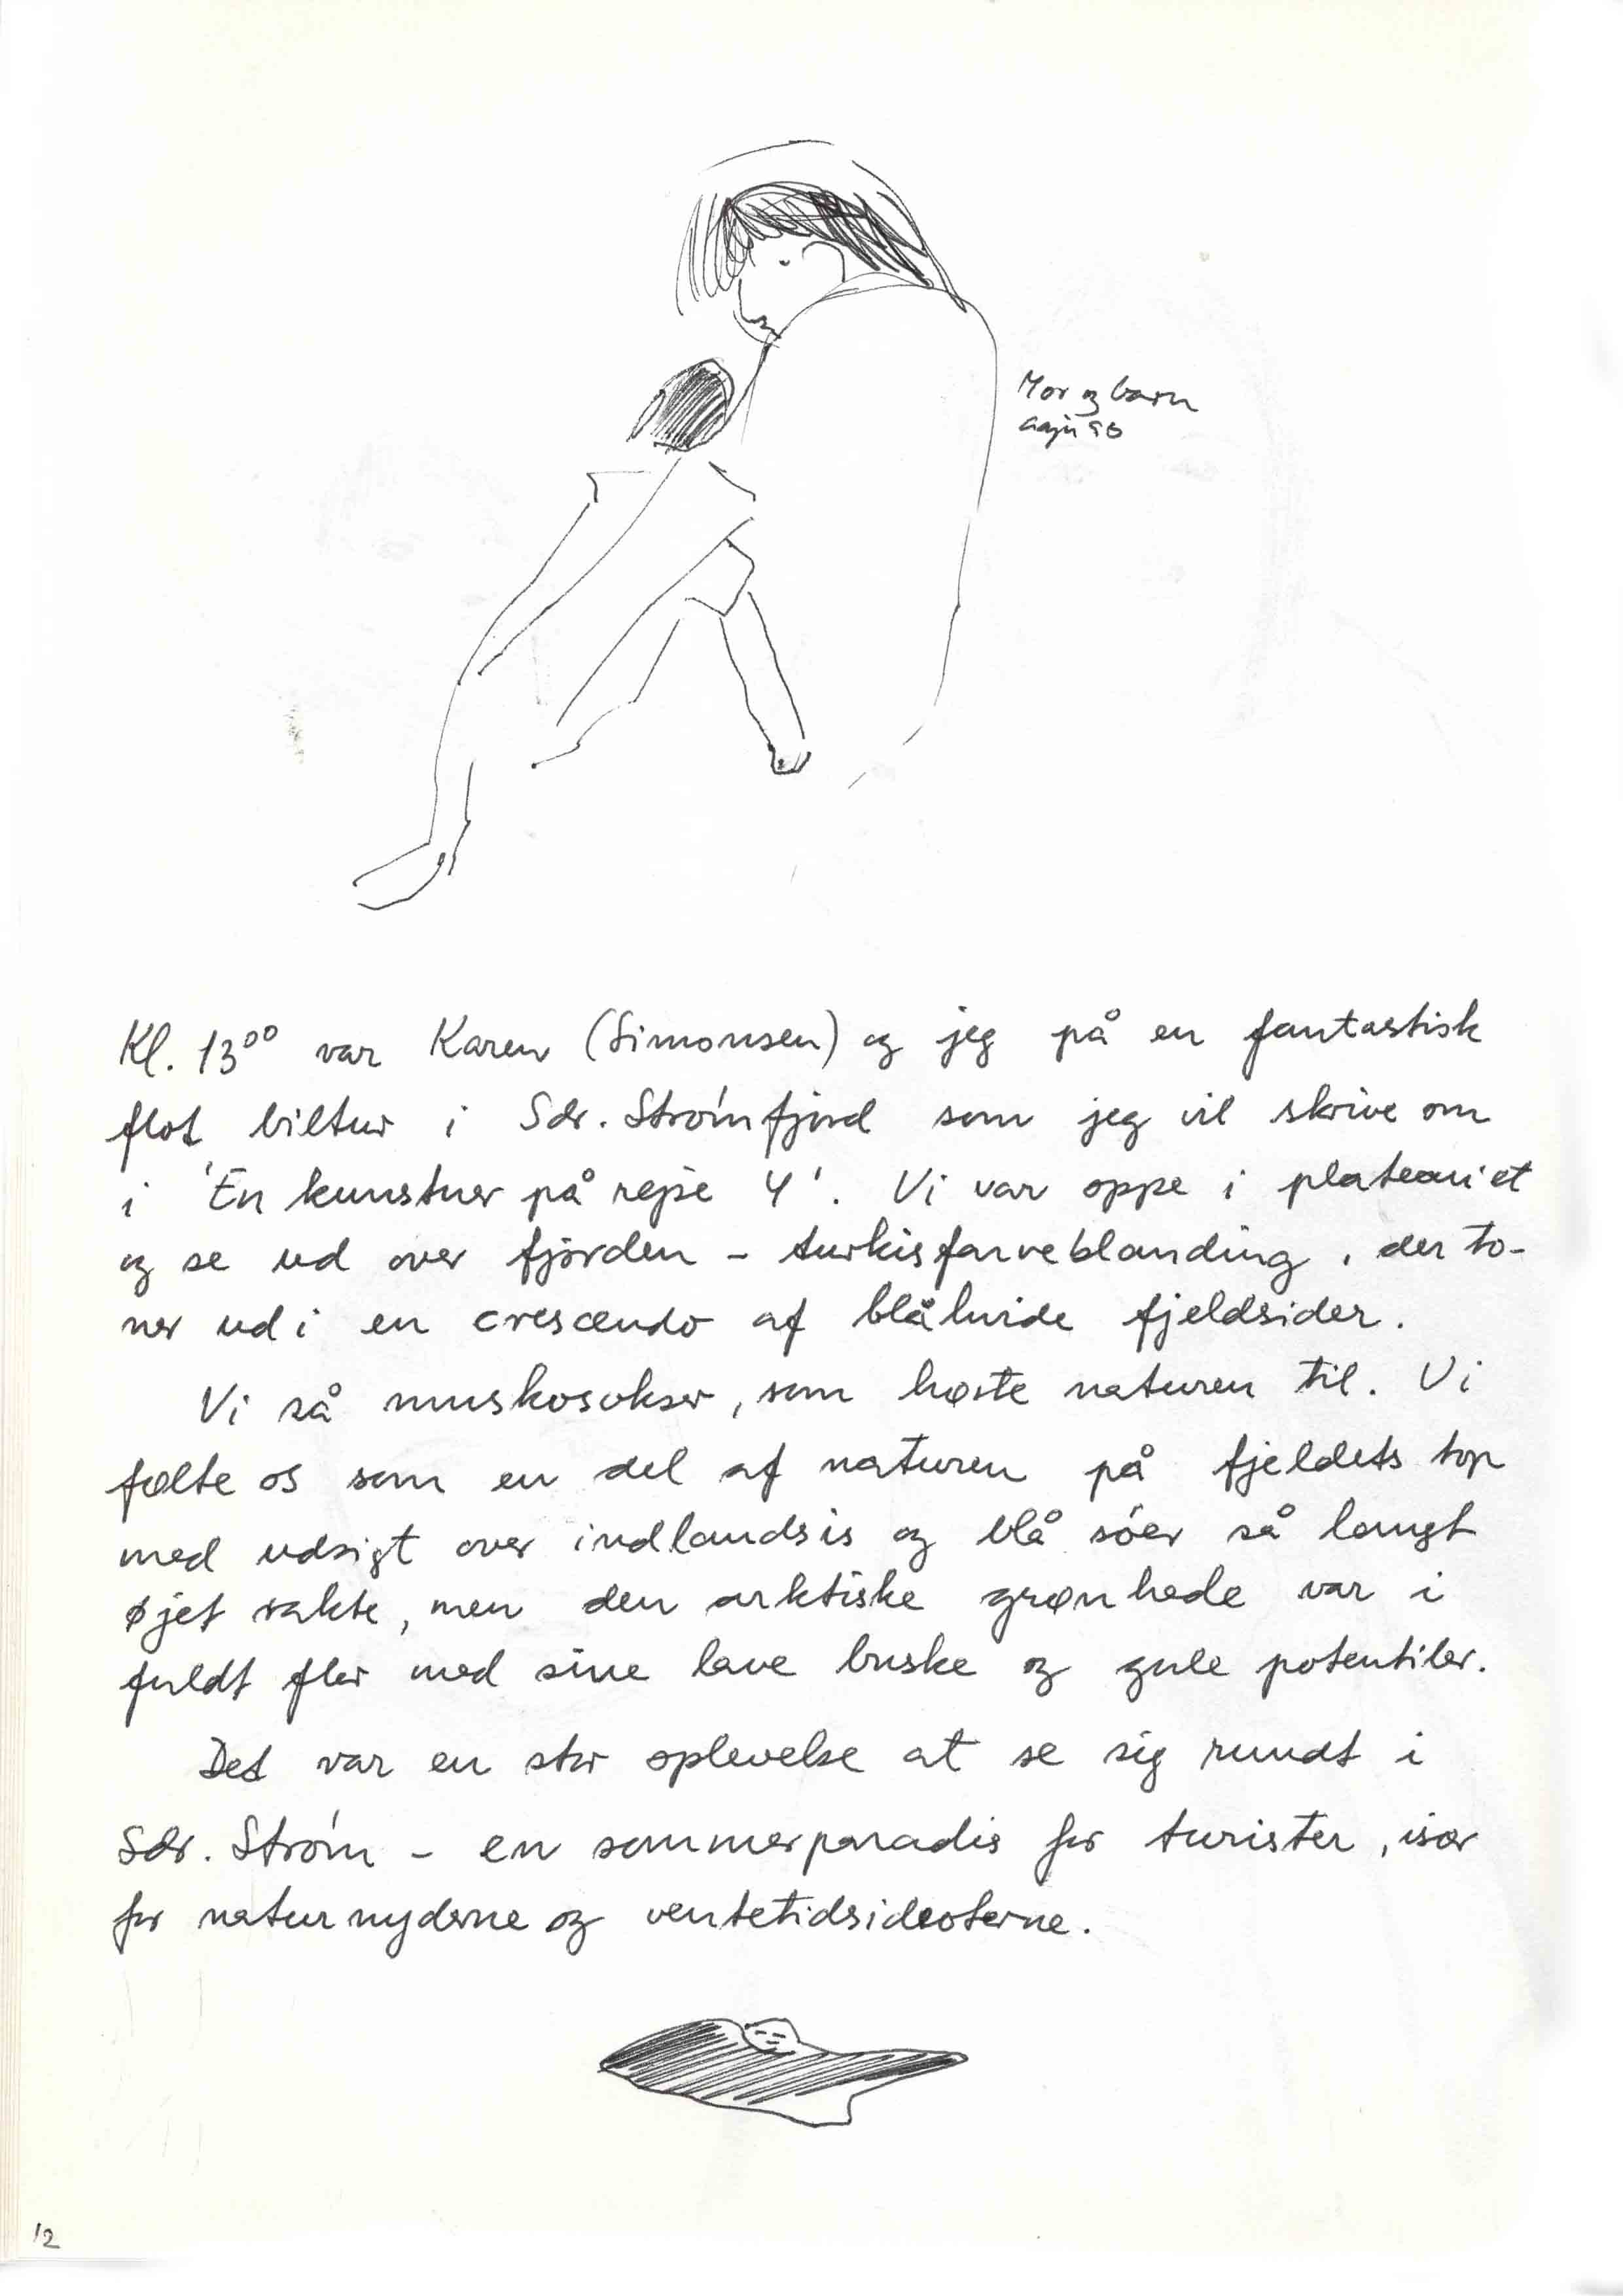 Mor og barn
Kl. 13⁰⁰ var Karen (Simonsen) og jeg på en fantastisk
flot biltur i Sdr. Strómfjord som jeg vil skrive om
i 'En kunstner på rejse 4'. Vi var oppe i plateauiet
og se ud over fjorden - turkisfarveblanding, der to-
ner ud i en crescendo af blåhvide fjeldsider.
Vi så muskosokser, som hørte naturen til. Vi
følte os som en del af naturen på fjeldets top
med udsigt over indlandsis og blå sóer så langt
øjet rakte, men den arktiske grønhede var i
fuldt flor med sine lave buske og gule potentiler.
Det var en stor oplevelse at se sig rundt i
Sdr. Stróm - en sommerparadis for turister, især
for naturnyderne og ventetidsideoterne.
12